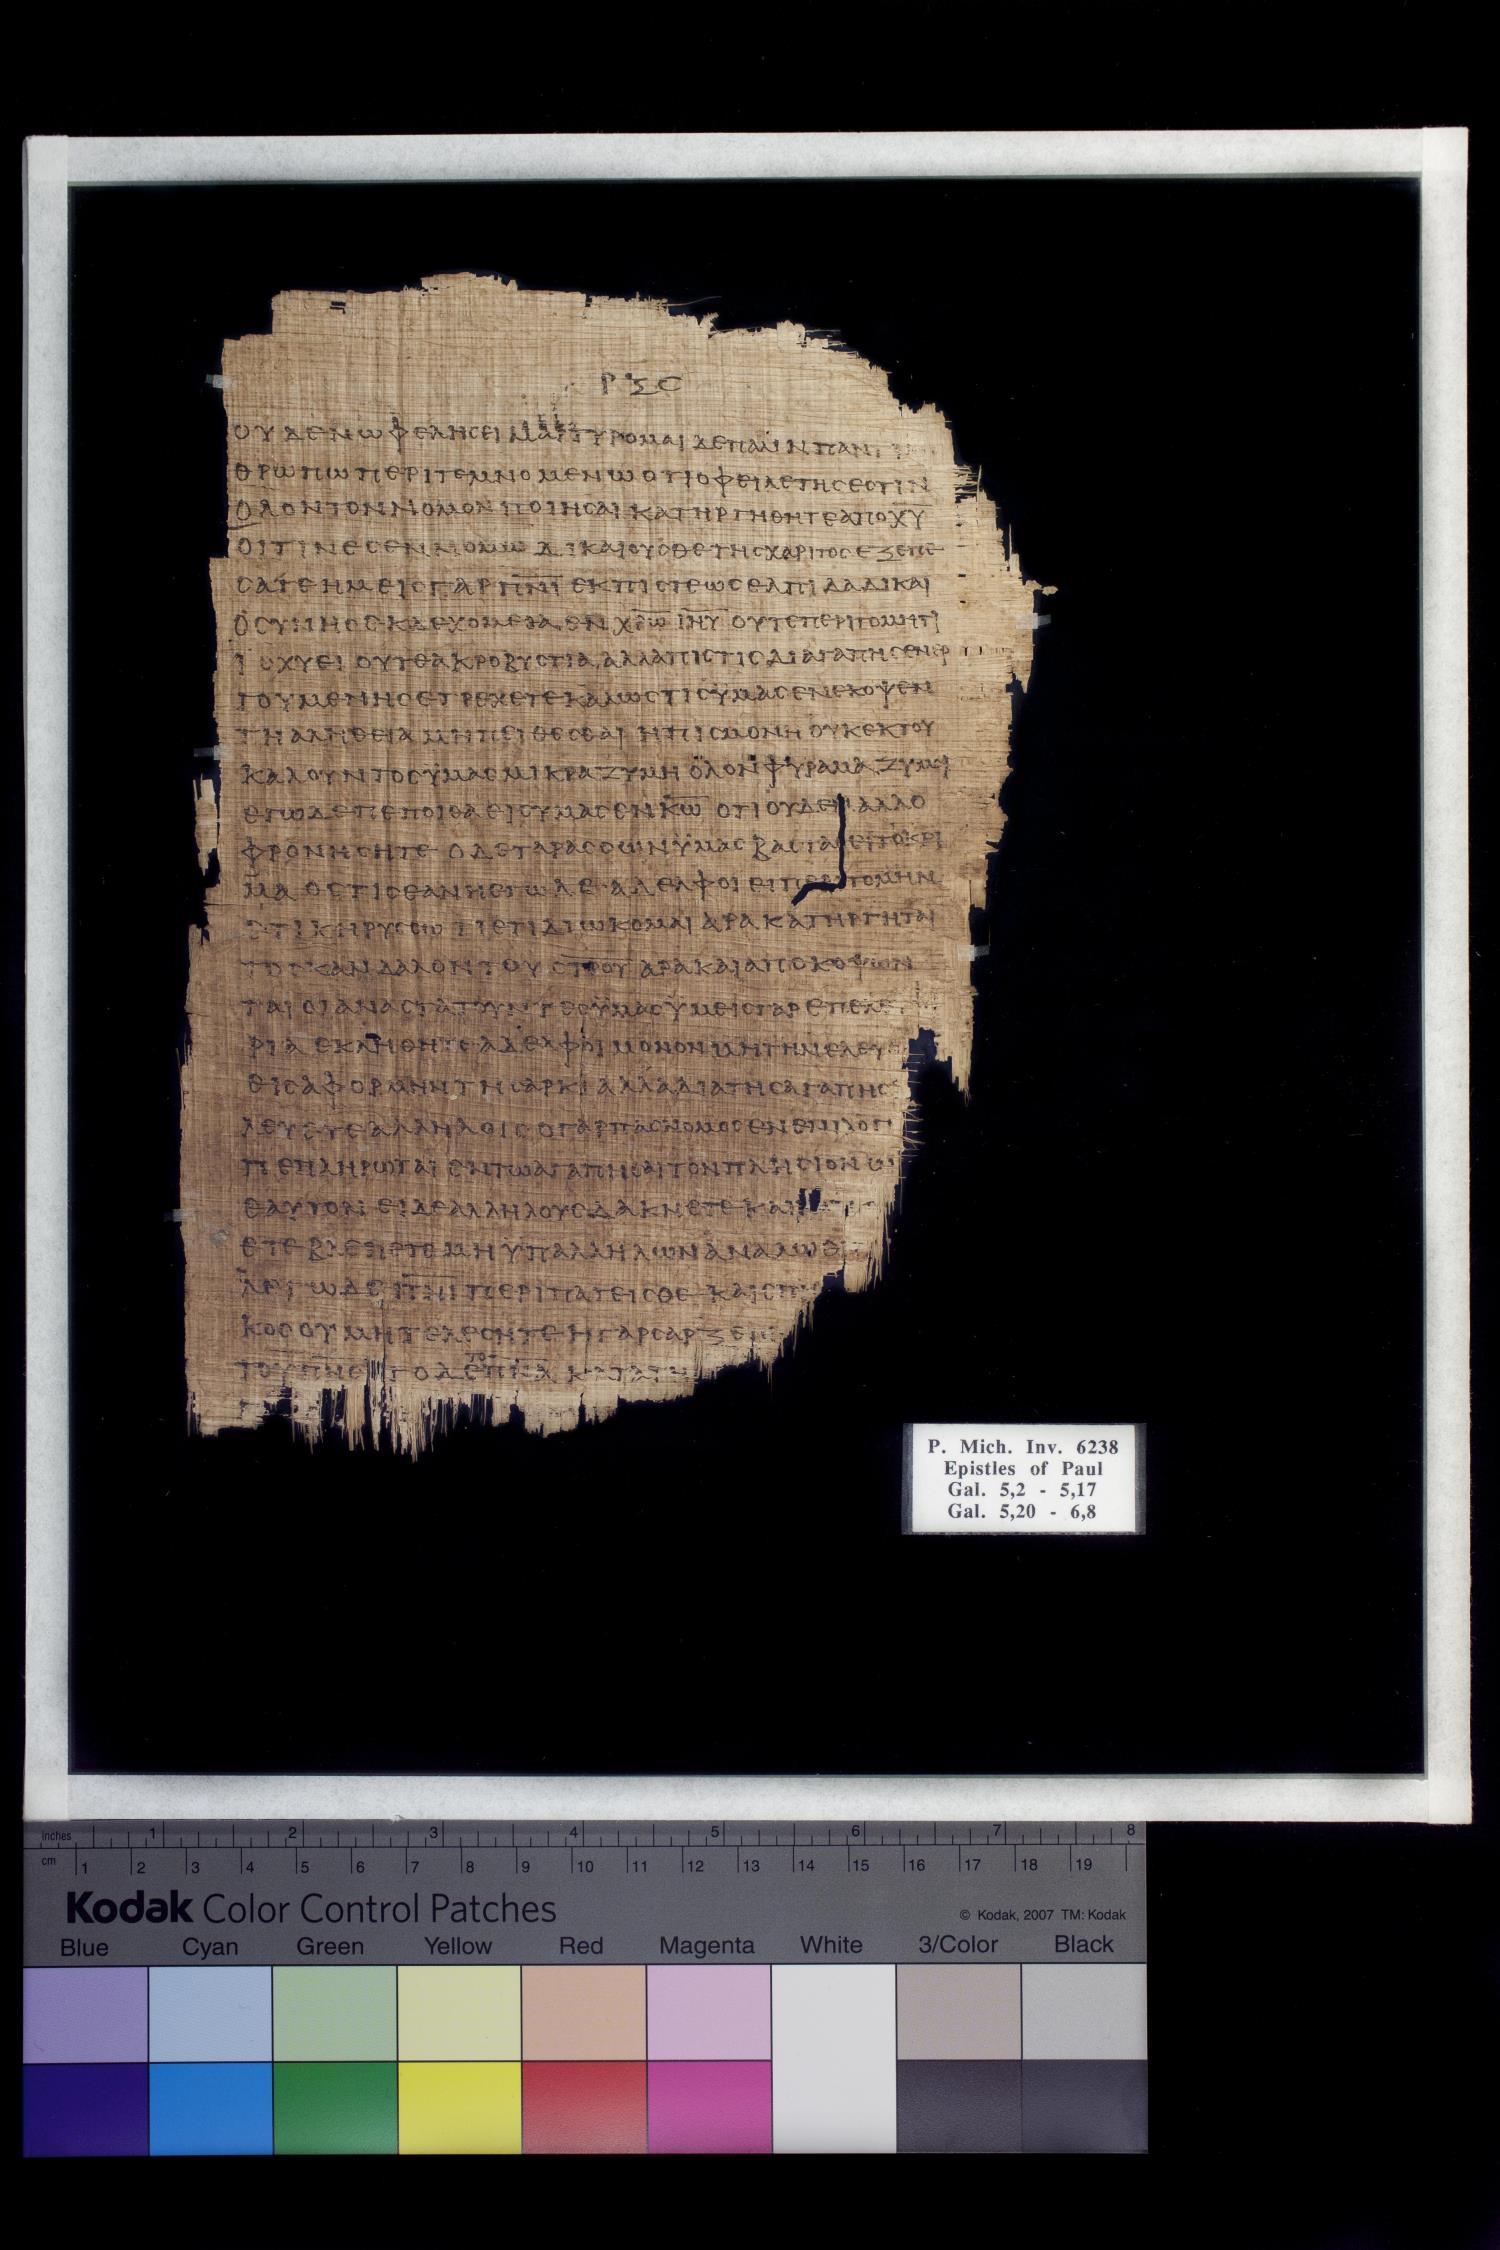 ΡΞϚ
ΟΥΔΕΝ ΩΦΕΛΗСΕΙ ΜΑΡΤΥΡΟΜΑΙ ΔΕ ΠΑΛΙΝ ΠΑΝ
ΘΡΩΠΩ ΠΕΡΙΤΕΜΝΟΜΕΝΩ ΟΤΙ ΟΦΕΙΛΕΤΗС ΕСΤΙΝ
ΟΛΟΝ ΤΟΝ ΝΟΜΟΝ ΠΟΙΗСΑΙ ΚΑΤΗΡΓΗΘΗΤΕ ΑΠΟ Χ̅Υ̅
ΟΙΤΙΝΕС ΕΝ ΝΟΜΩ ΔΙΚΑΙΟΥСΘΕ ΤΗС ΧΑΡΙΤΟС ΕΞΕΠΕ
СΑΤΕ ΗΜΕΙС ΓΑΡ Π̅Ν̅Ι̅ ΕΚ ΠΙСΤΕΩС ΕΛΠΙΔΑ ΔΙΚΑΙ
ΟСΥΝΗС ΕΚΔΕΧΟΜΕΘΑ ΕΝ Χ̅Ρ̅Ω̅ Ι̅Η̅Υ̅ ΟΥΤΕ ΠΕΡΙΤΟΜΗ ΤΙ
ΙСΧΥΕΙ ΟΥΤΕ ΑΚΡΟΒΥСΤΙΑ ΑΛΛΑ ΠΙСΤΙС ΔΙ ΑΓΑΠΗС ΕΝΕΡ
ΓΟΥΜΕΝΗС ΕΤΡΕΧΕΤΕ ΚΑΛΩС ΤΙС ΫΜΑС ΕΝΕΚΟΨΕΝ
ΤΗ ΑΛΗΘΕΙΑ ΜΗ ΠΕΙΘΕСΘΑΙ Η ΠΙСΜΟΝΗ ΟΥΚ ΕΚ ΤΟΥ
ΚΑΛΟΥΝΤΟС ΫΜΑС ΜΙΚΡΑ ΖΥΜΗ ΟΛΟΝ ΦΥΡΑΜΑ ΖΥΜΟΙ
ΕΓΩ ΔΕ ΠΕΠΟΙΘΑ ΕΙС ΥΜΑС ΕΝ Κ̅Ω̅ ΟΤΙ ΟΥΔΕΝ ΑΛΛΟ
ΦΡΟΝΗСΗΤΕ Ο ΔΕ ΤΑΡΑССΩΝ ΫΜΑС ΒΑСΤΑСΕΙ ΤΟ ΚΡΙ
ΜΑ ΟСΤΙС ΕΑΝ Η ΕΓΩ ΔΕ ΑΔΕΛΦΟΙ ΕΙ ΠΕΡΙΤΟΜΗΝ
ΕΤΙ ΚΗΡΥССΩ ΤΙ ΕΤΙ ΔΙΩΚΟΜΑΙ ΑΡΑ ΚΑΤΗΡΓΗΤΑΙ
ΤΟ СΚΑΝΔΑΛΟΝ ΤΟΥ С̅Τ̅Ρ̅Ο̅Υ̅ ΑΡΑ ΚΑΙ ΑΠΟΚΟΨΩΝ
ΤΑΙ ΟΙ ΑΝΑСΤΑΤΟΥΝΤΕС ΫΜΑС ΫΜΕΙС ΓΑΡ ΕΠ ΕΛΕ
ΡΙΑ ΕΚΛΗΘΗΤΕ ΑΔΕΛΦΟΙ ΜΟΝΟΝ ΜΗ ΤΗΝ ΕΛΕΥ
ΘΙС ΑΦΟΡΜΗΝ ΤΗ СΑΡΚΙ ΑΛΛΑ ΔΙΑ ΤΗС ΑΓΑΠΗС
ΛΕΥΕΤΕ ΑΛΛΗΛΟΙС Ο ΓΑΡ ΠΑС ΝΟΜΟС ΕΝ ΕΝΙ ΛΟΓ
ΠΕΠΛΗΡΩΤΑΙ ΕΝ ΤΩ ΑΓΑΠΗСΑΙ ΤΟΝ ΠΛΗСΙΟΝ
ΕΑΥΤΟΝ ΕΙ ΔΕ ΑΛΛΗΛΟΥС ΔΑΚΝΕΤΕ ΚΑΙ
ΕΤΕ ΒΛΕΠΕΤΕ ΜΗ ΫΠ ΑΛΛΗΛΩΝ ΑΝΑΛΩΘ
ΛΕΓΩ ΔΕ Π̅Ν̅Ι̅ ΠΕΡΙΠΑΤΕΙСΘΕ ΚΑΙ ΕΠΙ
ΚΟС ΟΥ ΜΗ ΤΕΛΕСΗΤΕ Η ΓΑΡ СΑΡΞ ΕΠΙ
ΤΟΥ Π̅Ν̅С̅ ΤΟ ΔΕ Π̅Ν̅Α̅ ΚΑΤΑ ΤΗ
P. Mich. Inv. 6238
Epistles of Paul
Gal. 5,2 - 5,17
Gal. 5,20 - 6,8
inches 1 2 3 4 5 6 7 8
cm 1 2 3 4 5 6 7 8 9 10 11 12 13 14 15 16 17 18 19
Kodak Color Control Patches
© Kodak, 2007 TM: Kodak
Blue Cyan Green Yellow Red Magenta White 3/Color Black